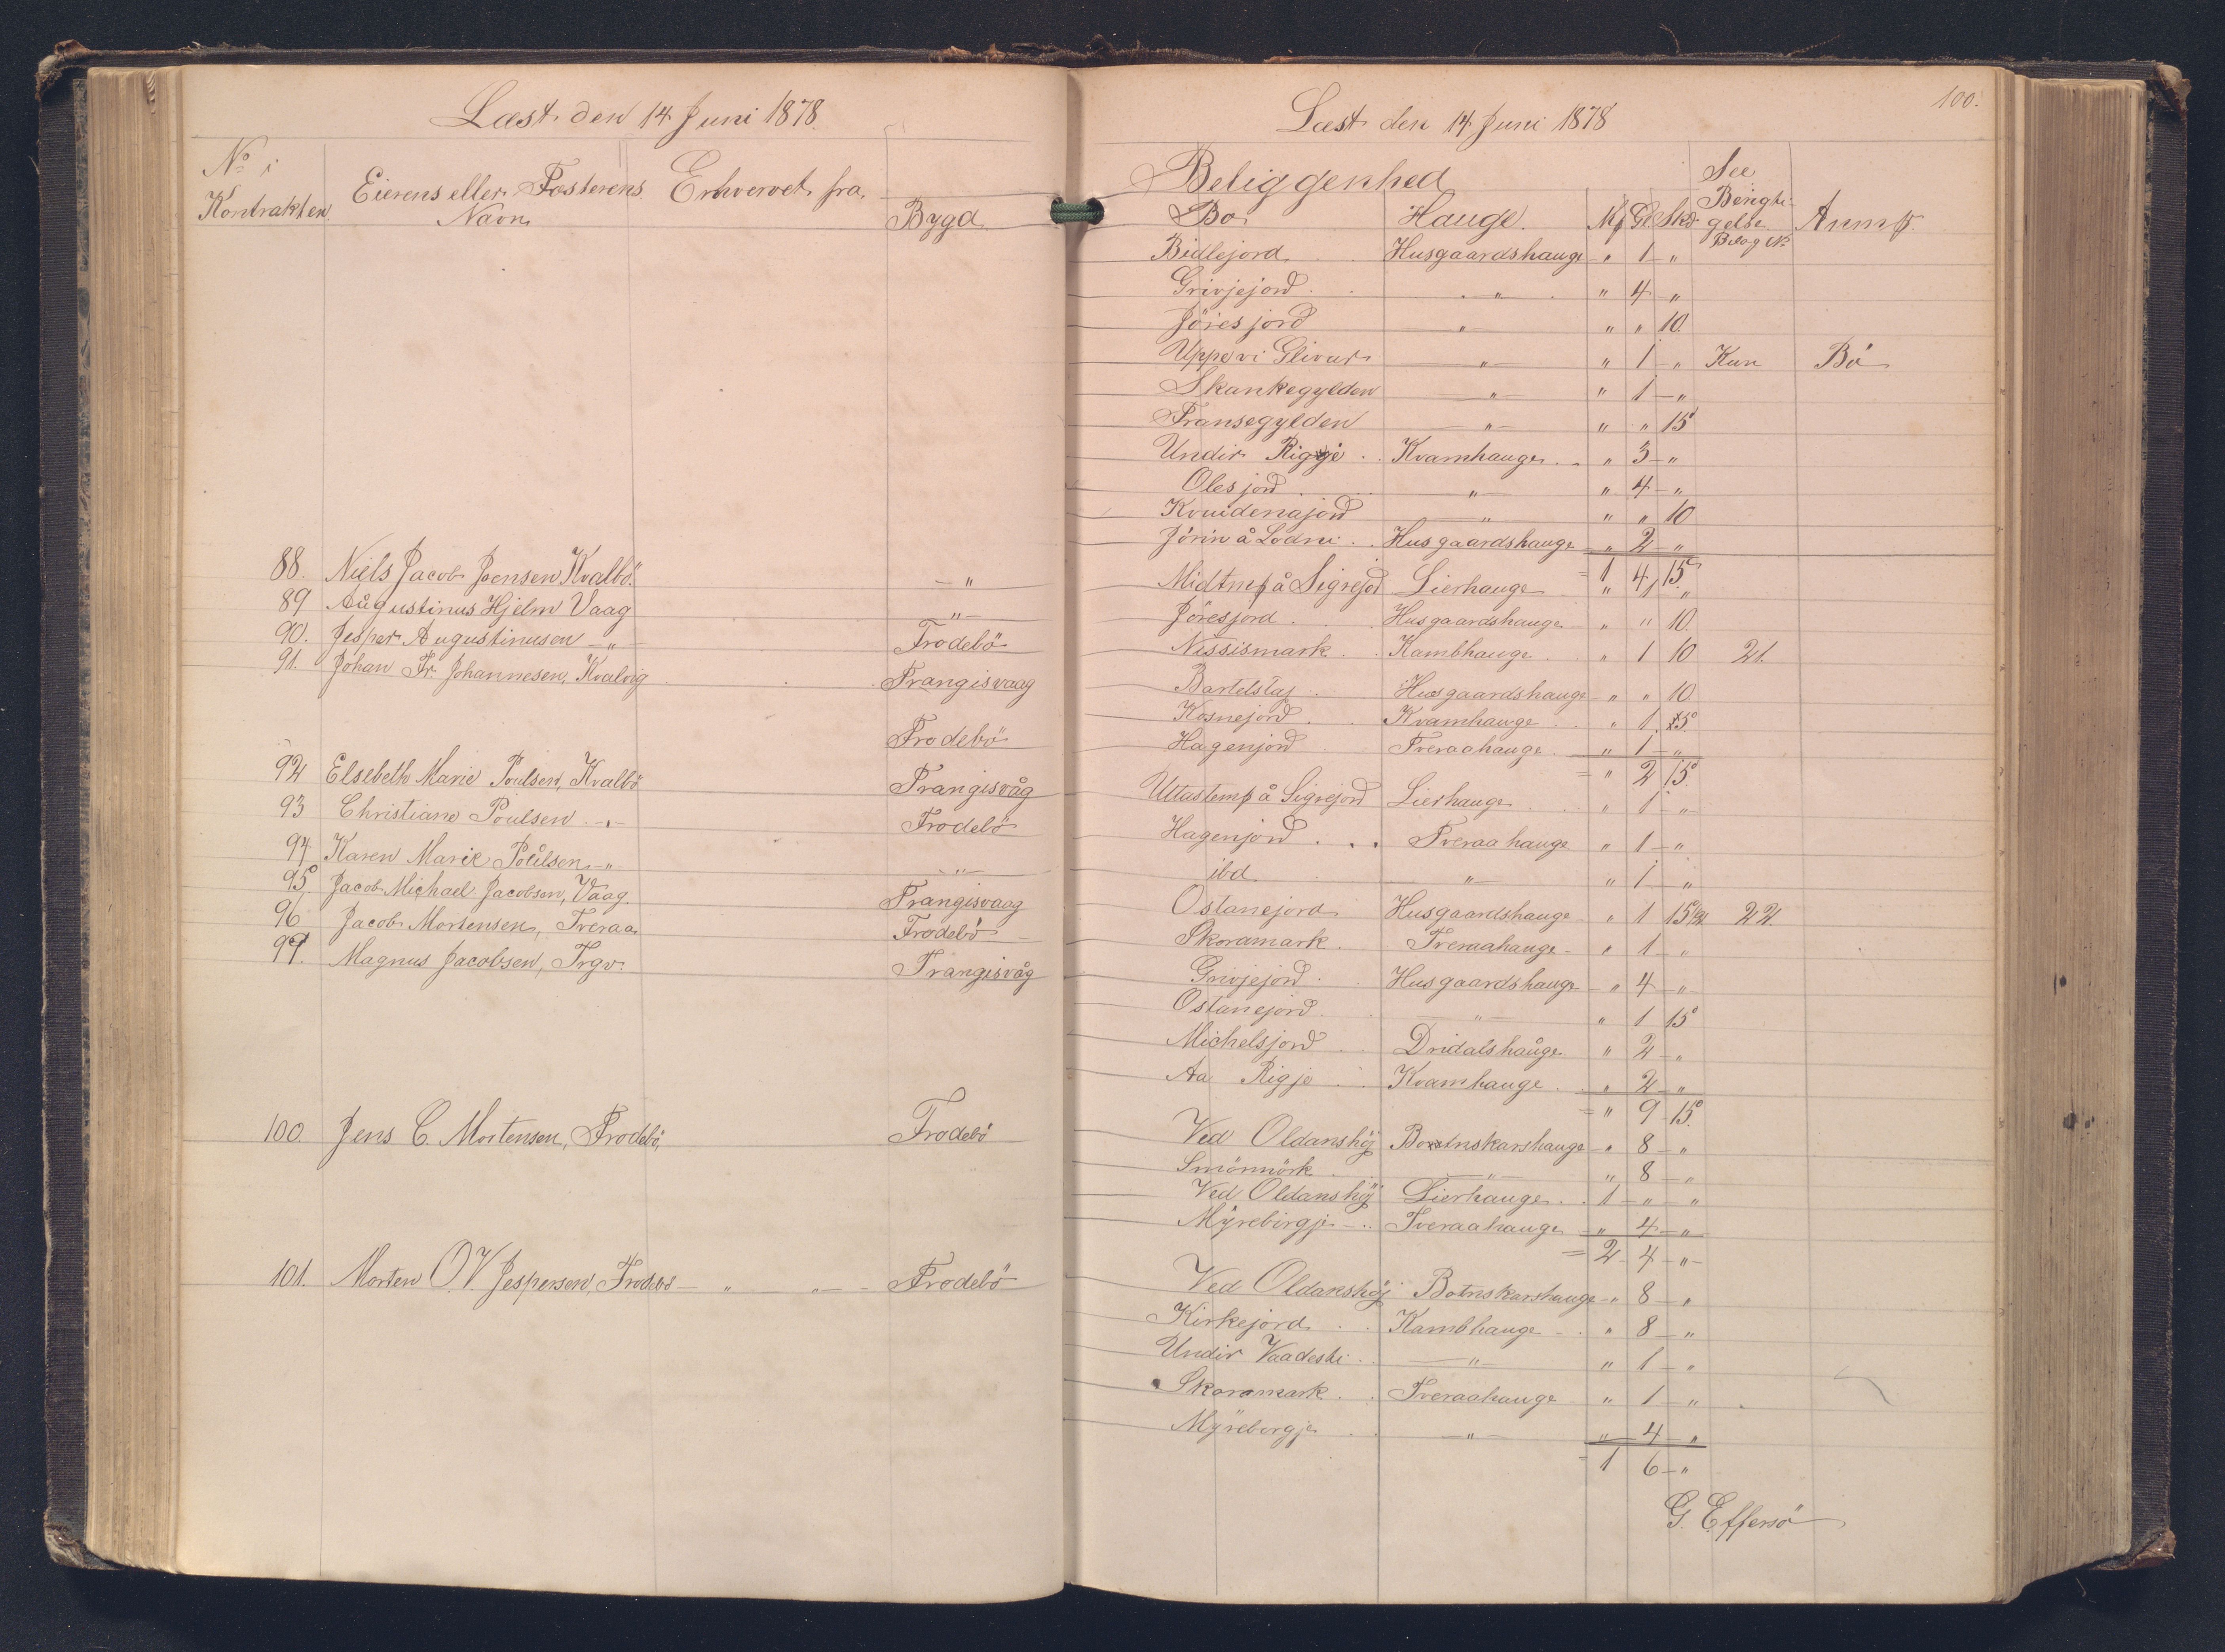 Læst den 14 Juni 1878.
No i
Kontrakten
Eierens eller Fæsterens
Navn
Erhvervet fra
Bygd
88. Niels Jacob Joensen Kvalbö. — "
89 Augustinus Hjelm Vaag — " —
90. Jesper Augustinusen — " — Frodebö
91. Johan Fr. Johannesen, Kvalvig Trangisvaag
Frodebö
92 Elsebeth Marie Poulsen, Kvalbö Trangisvåg
93 Christiane Poulsen — " Frodebö
94 Karen Marie Poulsen — " — " —
95. Jacob Michael Jacobsen, Vaag. Trangisvaag
96 Jacob Mortensen, Tveraa Frodebö
99. Magnus Jacobsen, Trgv. Trangisvåg
100. Jens C. Mortensen, Frodebö, Frodebö
101. Morten O.V. Jespersen, Frodebö — " — " — Frodebö
100.
Læst den 14 Juni 1878
Beliggenhed
Bo Hauge. Mk Gl Skd
See
Berigti-
gelse
Belag No
Anmk.
Bidlejord Husgaardshauge " 1 "
Grivjejord " " 4 "
Jöresjord " " " 10.
Uppe vi Glivur " " 1 " Kun Bö
Skankegylden " " 1 "
Fransegylden " " " 15
Undir Riggje Kvamhauge " 3 "
Oles jord " " 4 "
Kvuidenajord " " " 10
Jörin å Lödni Husgaardshauge " 2 "
= 1 4 15
Midtmk å Sigrejord Lierhauge " 1 "
Jöresjord. Husgaardshauge " " 10.
Nissismark Kambhauge " 1 10 21.
Bartelstaj Husgaardshauge " " 10.
Kosnejord. Kvamhauge " 1 15.
Hagenjord Tveraahauge " 1 "
= " 2 15.
Uttastemk å Sigrejord Lierhauge " 1 "
Hagenjord Tveraahauge " 1 "
ibd " " 1 "
Ostanejord Husgaardshauge " 1 15 1/2 22.
Skoramark. Tveraahauge " 1 "
Grivjejord Husgaardshauge " 4 "
Ostanejord " " 1 15
Michelsjord Dridalshauge " 2 "
Aa Rigje Kvamhauge " 2 "
= " 9 15.
Ved Oldanshöj Botnskarshauge " 8 "
Smönnörk " " 8 "
Ved Oldanshöj Lierhauge 1 " "
Myrebirgje Tveraahauge " 4 "
= 2 4 "
Ved Oldanshöj Botnskarshauge " 8 "
Kirkejord Kambhauge " 8 "
Undir Vaadeshi " " 1 "
Skoramark Tveraahauge " 1 "
Myrebirgje " " 4 "
= 1 6 "
G. Effersö